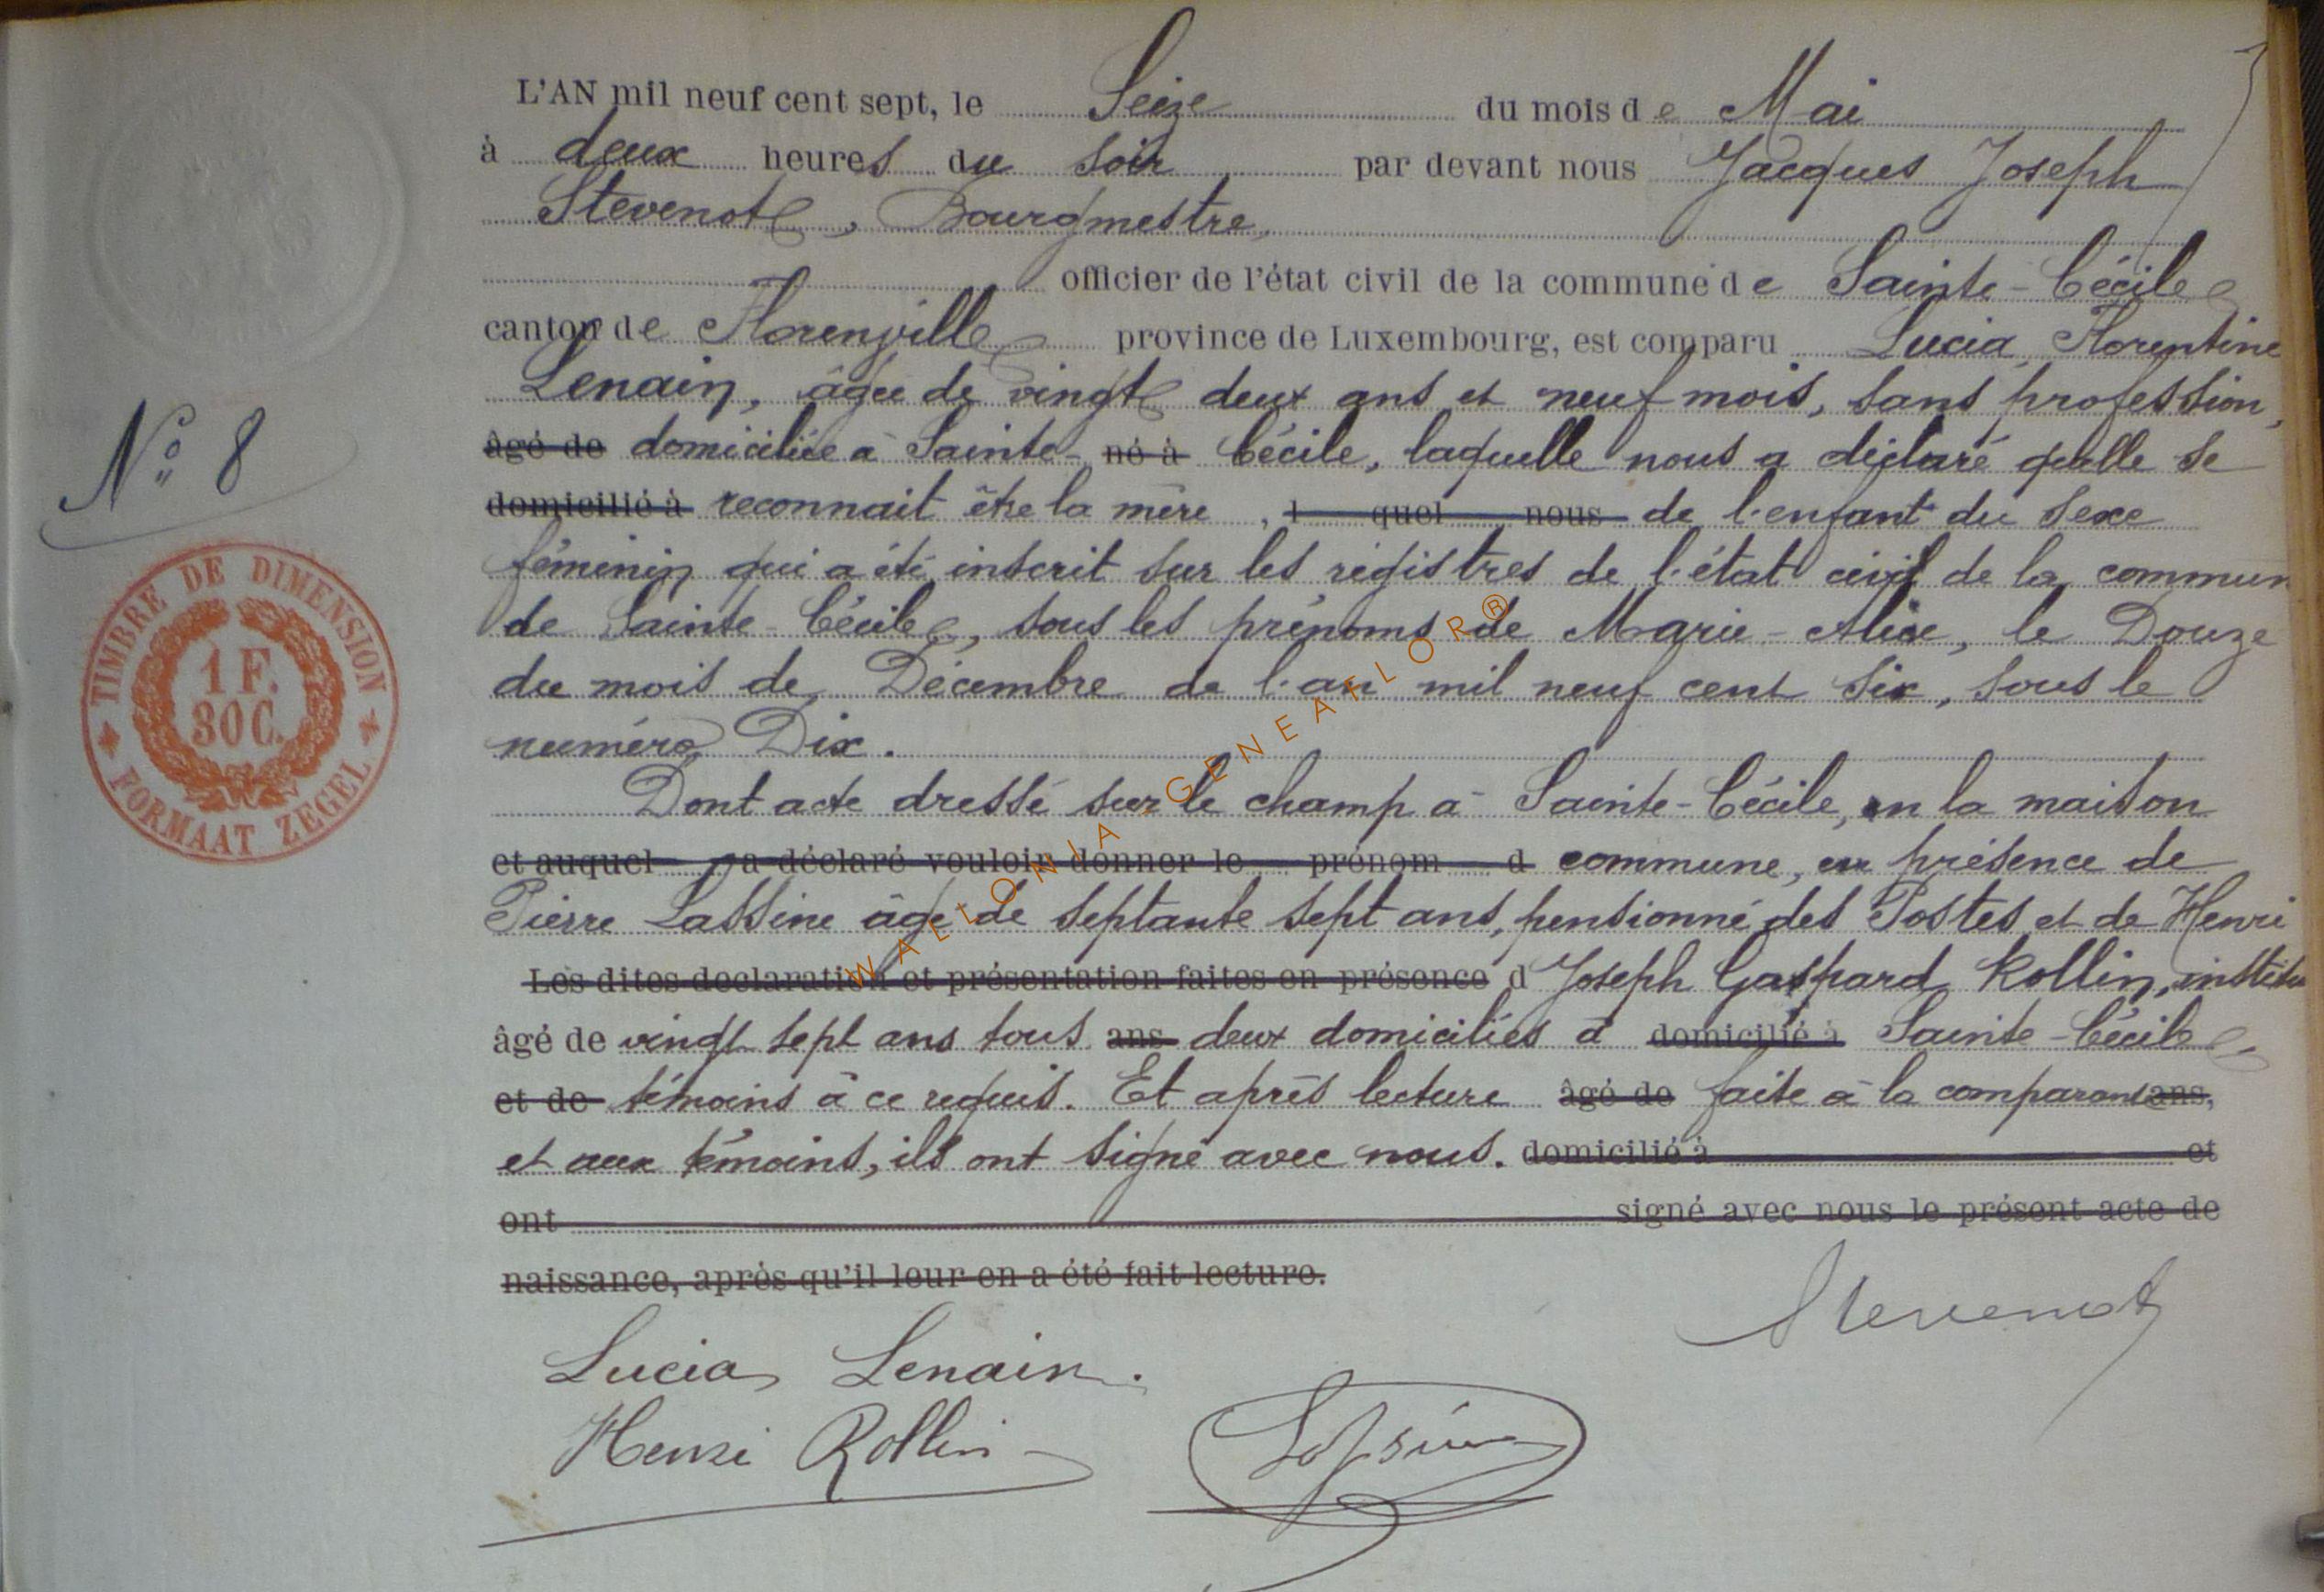 L'AN mil neuf cent sept, le Seize du mois de Mai
à deux heures du soir par devant nous Jacques Joseph
Stevenot, Bourgmestre,
officier de l'état civil de la commune de Sainte-Cécile
canton de Florenville province de Luxembourg, est comparu Lucia Florentine
Lenain, âgée de vingt deux ans et neuf mois, sans profession,
âgé de domiciliée à Sainte- né à Cécile, laquelle nous a déclaré qu'elle se
domicilié à reconnait être la mère , l quel nous de l'enfant du sexe
féminin qui a été inscrit sur les régistres de l'état civil de la commun
de Sainte-Cécile, sous les prénoms de Marie-Alice, le Douze
du mois de Décembre de l'an mil neuf cent six, sous le
numéro Dix.
N° 8
TIMBRE DE DIMENSION
1 F.
30 C.
FORMAAT ZEGEL
Dont acte dressé sur le champ à Sainte-Cécile, en la maison
et auquel a déclaré vouloir donner le prénom d commune, en présence de
Pierre Lassine âgé de septante sept ans, pensionné des Postes et de Henri
Les dites declaration et présentation faites en présence d Joseph Gaspard Rollin, institu
âgé de vingt sept ans tous ans deux domiciliés à domicilié à Sainte-Cécile
et de témoins à ce requis. Et après lecture âgé de faite à la comparante ans,
et aux témoins, ils ont signé avec nous. domicilié à et
ont signé avec nous le présent acte de
naissance, après qu'il leur en a été fait lecture.
Stevenot
Lucia Lenain.
Henri Rollin
Lassine
WALLONIA GENEAFLOR®